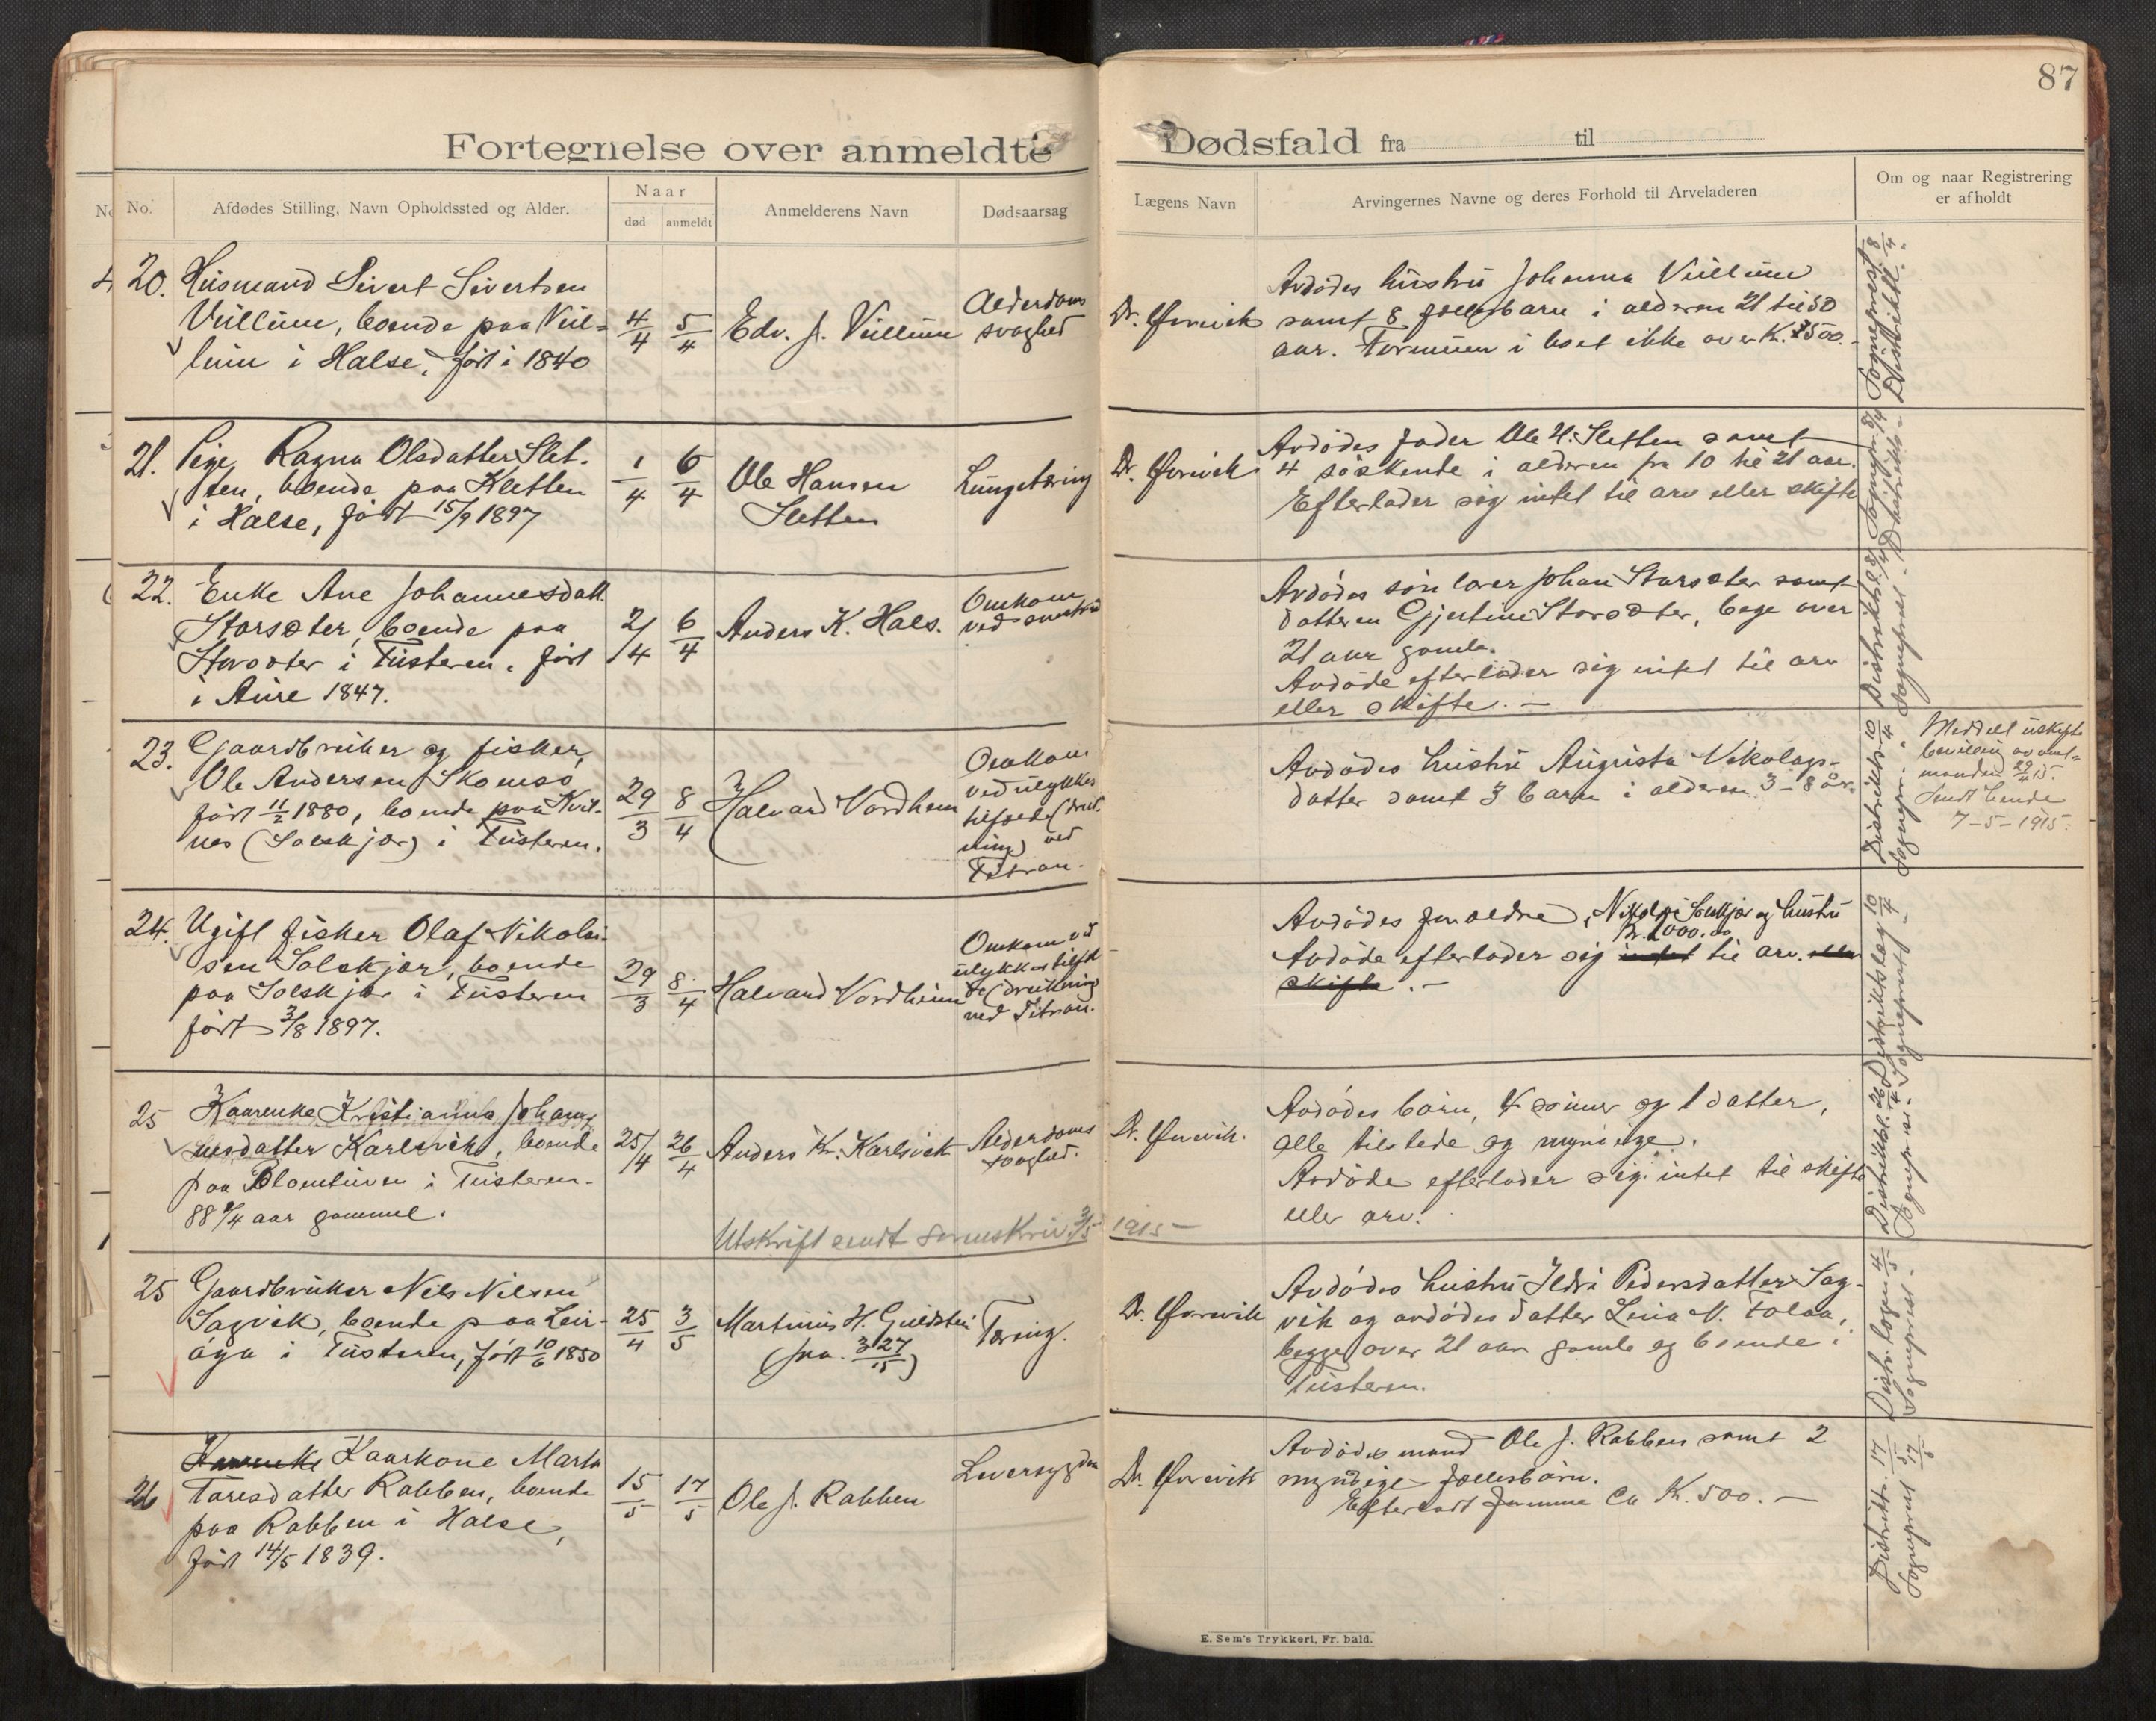 87
Fortegnelse over anmeldte Dødsfald fra til
No.
Afdødes Stilling, Navn Opholdssted og Alder.
Naar
død
anmeldt
Anmelderens Navn
Dødsaarsag
Lægens Navn
Arvingernes Navne og deres Forhold til Arveladeren
Om og naar Registrering
er afholdt
20. Husmand Sivert Sivertsen
Vullum, boende paa Vul-
lum i Halse, født i 1840
4/4
5/4
Edv. J. Vullum
Alderdoms
svaghed
Dr. Ørnvik
Avdødes hustru Johanna Vullum
samt 8 fællesbarn i alderen 21 til 50
aar. Formuen i boet ikke over Kr. 1500.-
Sogneprest 8/4
Distrikts. 8/4 -
21. Pige Ragna Olsdatter Slet-
ten, boende paa Kletten
i Halse, født 15/9 1897
1/4
6/4
Ole Hansen
Sletten
Lungetæring
Dr. Ørnvik
Avdødes fader Ole H. Sletten samt
4 søskende i alderen fra 10 til 21 aar.
Efterlader sig intet til arv eller skifte
Sognepr. 8/4
Distrikts -
22. Enke Ane Johannesdatt.
Storsæter, boende paa
Storsæter i Tusteren. født
i Aure 1847.
2/4
6/4
Anders K. Hals.
Omkom
ved
Avdødes søn lærer Johan Storsæter samt
datteren Gjertine Storsæter, bege over
21 aar gamle.
Avdøde efterlader sig intet til arv
eller skifte. -
Distrikts. 8/4
Sogneprest -
23. Gaardbruker og fisker,
Ole Andersen Skomsø
født 11/2 1880, boende paa Kvit-
nes (Solskjær) i Tusteren.
29/3
8/4
Halvard Nordheim
Omkom
ved ulykkes
tilfælde (druk-
ning) ved
Titran.
Avdødes hustru Augusta Nikolays-
datter samt 3 barn i alderen 3-8 år.
Distrikts 10/4
Sognepr. - "
Meddelt uskifte
bevilling av amt-
manden 29/4 15.
Sendt hende
7-5-1915.
24. Ugift fisker Olaf Nikolai-
sen Solskjær, boende
paa Solskjær i Tusteren
født 3/8 1897.
29/3
8/4
Halvard Nordheim
Omkom ved
ulykkestilfæl
de (drukning
ved Titran.
Avdødes forældre, Nikolai Solskjær og hustru
Kr. 1000.00
Avdøde efterlader sig intet til arv. eller
skifte. -
Distriktslæg 10/4
Sogneprest -
25 Kaarenke Kristianna Johan-
nesdatter Karlsvik, boende
paa Blomtuven i Tusteren.
88 3/4 aar gammel.
25/4
26/4
Anders Kr. Karlsvik
Alderdoms
svaghed.
Dr. Ørnvik.
Avdødes børn, 4 sønner og 1 datter,
alle tilstede og myndige.
Avdøde efterlader sig intet til skifte
eller arv.
Distriktsl. 26/4
Utskrift sendt sorenskriv. 3/5 1915 -
25 Gaardbruker Nils Nilsen
Sagvik, boende paa Leir-
øya i Tusteren, født 10/6 1850
25/4
3/5
Martinus H. Guldstein
(jnr. 327/15)
Tæring.
Dr. Ørnvik
Avdødes hustru Ildri Pedersdatter Sag-
vik og avdødes datter Lina N. Folaa,
begge over 21 aar gamle og boende i
Tusteren.
Distr. lægen 4/5
Sogneprest -
26 Kaarenke Kaarkone Marta
Taresdatter Rabben, boende
paa Rabben i Halse,
født 14/5 1839.
15/5
17/5
Ole J. Rabben
Leversygdom
Dr. Ørnvik
Avdødes mand Ole J. Rabben samt 2
myndige fællesbørn.
Efterladt formue ca Kr. 500. -
Distrikts. 17/5
Sogneprest 17/5
E. Sem's Trykkeri, Fr. hald.